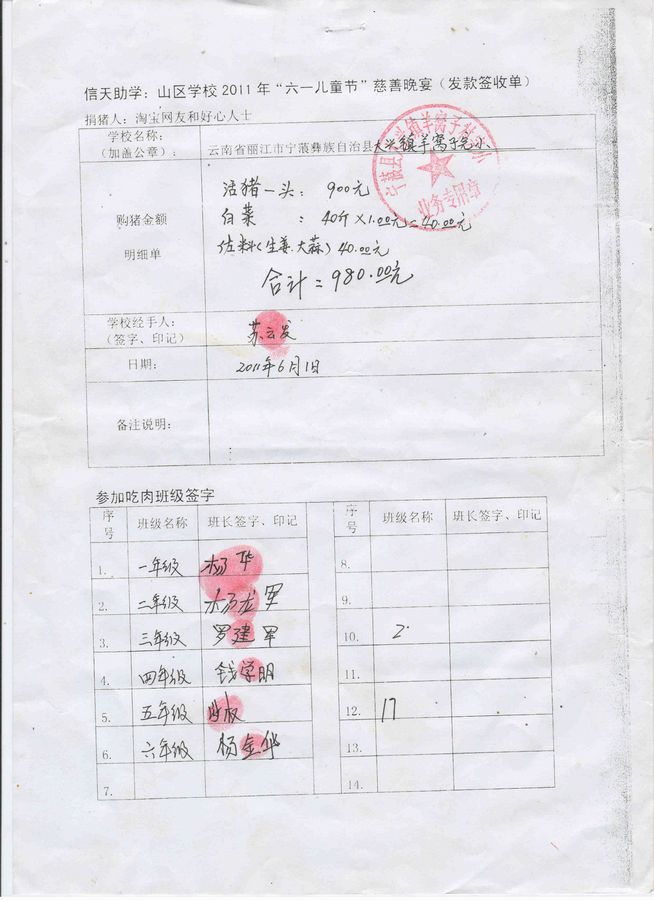 信天助学：山区学校2011年“六一儿童节”慈善晚宴（发款签收单）
捐猪人：淘宝网友和好心人士
学校名称：
（加盖公章）：
云南省丽江市宁蒗彝族自治县大兴镇羊窝子完小
业务专用章
购猪金额
明细单
活猪一头：900元
白菜：40斤×1.00元=40.00元
佐料(生姜.大蒜)40.00元
合计=980.00元
学校经手人：
（签字、印记）
苏云发
日期：
2011年6月1日
备注说明：
参加吃肉班级签字
序号 班级名称 班长签字、印记 序号 班级名称 班长签字、印记
1. 一年级 杨华 8.
2. 二年级 杨龙军 9.
3. 三年级 罗建军 10. 2.
4. 四年级 钱学明 11.
5. 五年级 12. 17
6. 六年级 杨金华 13.
7. 14.